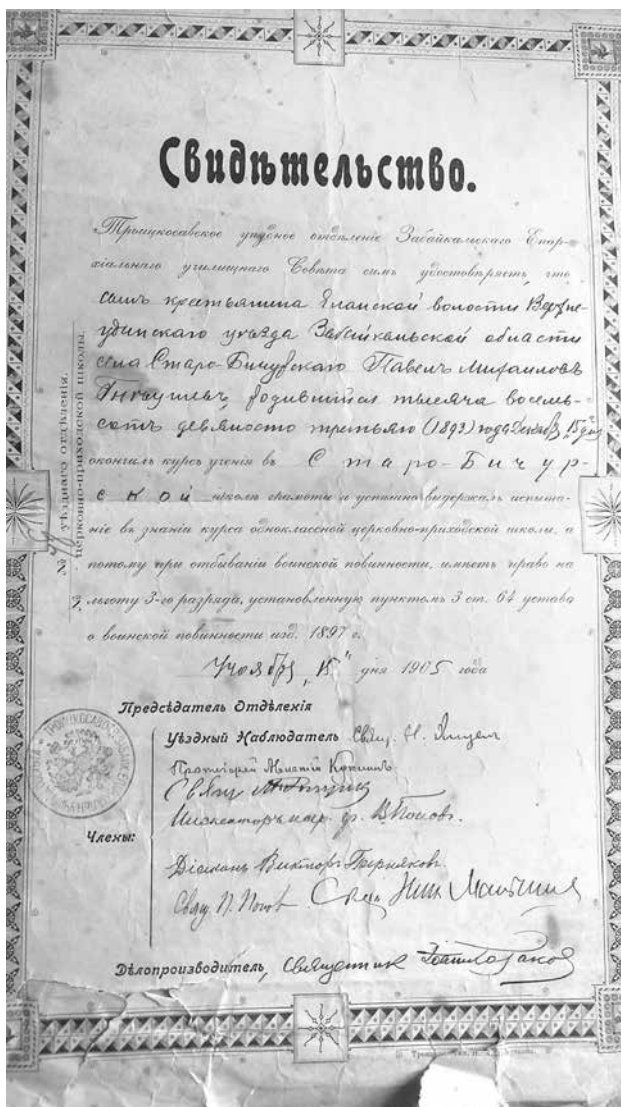 Свидѣтельство.
Троицкосавское уѣздное отдѣленіе Забайкальскаго Епар-
хіальнаго училищнаго Совѣта симъ удостовѣряетъ, что
сынъ крестьянина Еланской волости Верхне-
удинскаго уѣзда Забайкальской области
села Старо-Бичурскаго Павелъ Михаиловъ
родившійся тысяча восемь-
сотъ девяносто третьяго (1893) года Декабря „15" дня
окончилъ курсъ ученія въ Старо-Бичур-
ской школѣ грамоты и успѣшно выдержалъ испыта-
ніе въ знаніи курса одноклассной церковно-приходской школы, а
потому при отбываніи воинской повинности, имѣетъ право на
льготу 3-го разряда, установленную пунктомъ 3 ст. 64 устава
о воинской повинности изд. 1897 г.
Ноября „15" дня 1905 года
№ уѣзднаго отдѣленія.
церковно-приходской школы.
Предсѣдатель Отдѣленія
Уѣздный Наблюдатель Свящ. Н.
Протоіерей
Свящ
Инспекторъ В. Поповъ.
Члены:
Діаконъ Викторъ
Свящ. П. Попов
Дѣлопроизводитель, Священник